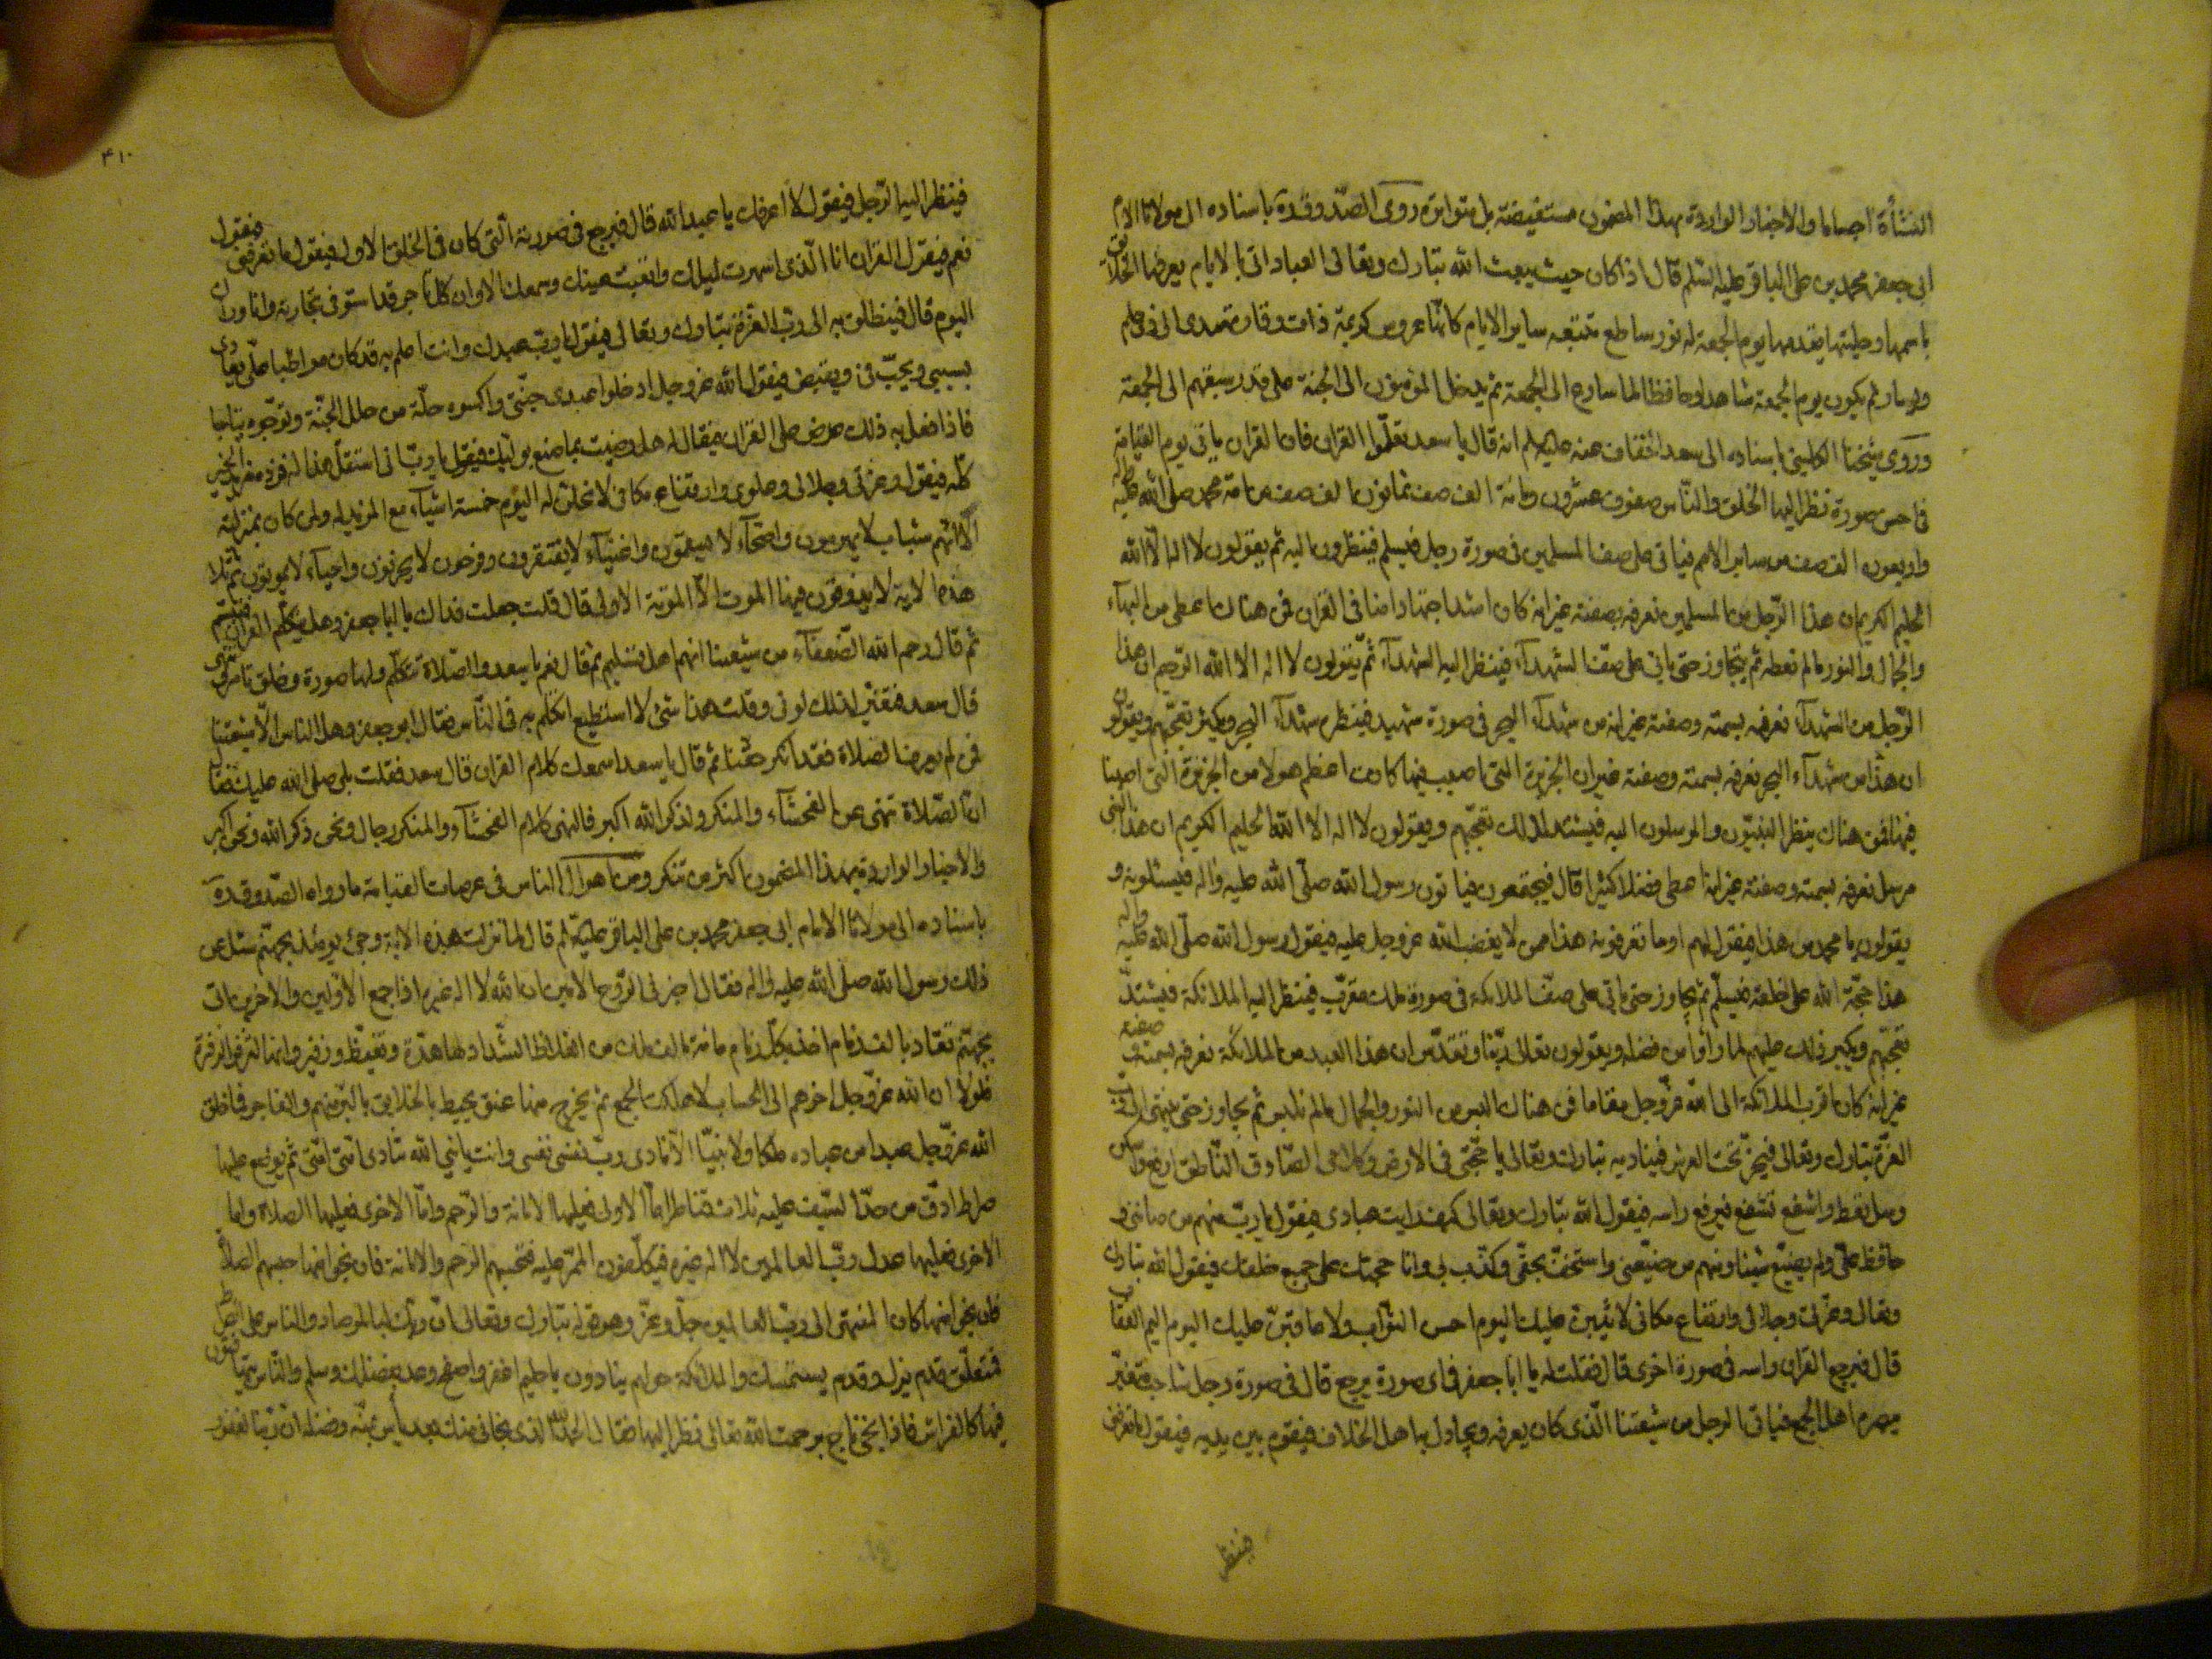 النشأة اجساما والاخبار الواردة بهذا المضمون مستفيضة بل متواترة روى الصدوق قده باسناده الى مولانا الامام
ابى جعفر محمد بن على الباقر عليه السلم قال اذا كان حيث يبعث الله تبارك وتعالى العباد اتى بالايام يعرفها الخلائق
باسمها وحليتها يقدمها يوم الجمعة له نور ساطع تتبعه ساير الايام كانها عروس كريمة ذات وقار تهدى الى ذى حلم
ويسار ثم يكون يوم الجمعة شاهدا وحافظا لمن سارع الى الجمعة ثم يدخل المؤمنون الى الجنة على قدر سبقهم الى الجمعة
وروى شيخنا الكلينى باسناده الى سعد الخفاف عنه عليه السلم انه قال يا سعد تعلموا القران فان القران ياتى يوم القيامة
فى احسن صورة نظر اليها الخلق والناس صفوف عشرون ومائة الف صف ثمانون الف صف من امة محمد صلى الله عليه واله
واربعون الف صف من ساير الامم فياتى على صف المسلمين فى صورة رجل فيسلم فينظرون اليه ثم يقولون لا اله الا الله
الحليم الكريم ان هذا الرجل من المسلمين نعرفه بصفته غير انه كان اشد اجتهادا منا فى القران فمن هناك اعطى من البهاء
والجمال والنور ما لم نعطه ثم يتجاوز حتى ياتى على صف الشهداء فينظر اليه الشهداء ثم يقولون لا اله الا الله الرحيم ان هذا
الرجل من الشهداء نعرفه بسمته وصفته غير انه من شهداء البحر فى صورة شهيد فينظر شهداء البحر ويكثر تعجبهم ويقولون
ان هذا من شهداء البحر نعرفه بسمته وصفته غير ان الجزيرة التى اصيب فيها كانت اعظم هولا من الجزيرة التى اصبنا
فيها فمن هناك ينظر النبيون والمرسلون اليه فيشتد لذلك تعجبهم ويقولون لا اله الا الله الحليم الكريم ان هذا النبى
مرسل نعرفه بسمته وصفته غير انه اعطى فضلا كثيرا قال فيجتمعون فياتون رسول الله صلى الله عليه واله فيسئلونه و
يقولون يا محمد من هذا فيقول لهم اوما تعرفونه هذا ممن لا يغضب الله عز وجل عليه فيقول رسول الله صلى الله عليه واله
هذا حجة الله على خلقه فيسلم ثم يجاوز حتى ياتى على صف الملائكة فى صورة ملك مقرب فينظر اليه الملائكة فيشتد
تعجبهم ويكبر ذلك عليهم لما راوا من فضله ويقولون تعالى ربنا وتقدس ان هذا العبد من الملائكة نعرفه بسمته وصفته
غير انه كان اقرب الملائكة الى الله عز وجل مقاما فمن هناك البس من النور والجمال ما لم نلبس ثم يجاوز حتى ينتهى الى رب
العزة تبارك وتعالى فيخر تحت العرش فيناديه تبارك وتعالى يا حجتى فى الارض وكلامى الصادق الناطق ارفع راسك
وسل تعط واشفع تشفع فيرفع راسه فيقول الله تبارك وتعالى كيف رايت عبادى فيقول يا رب منهم من صاننى و
حافظ على ولم يضيع شيئا ومنهم من ضيعنى واستخف بحقى وكذب بى وانا حجتك على جميع خلقك فيقول الله تبارك
وتعالى وعزتى وجلالى وارتفاع مكانى لاثيبن عليك اليوم احسن الثواب ولاعاقبن عليك اليوم اليم العقاب
قال فيرجع القران راسه فى صورة اخرى قال فقلت له يا ابا جعفر فى اى صورة يرجع قال فى صورة رجل شاحب متغير
يبصره اهل الجمع فياتى الرجل من شيعتنا الذى كان يعرفه ويجادل به اهل الخلاف فيقوم بين يديه فيقول ما تعرفنى
فينظر
٤١٠
فينظر اليه الرجل فيقول لا اعرفك يا عبد الله قال فيرجع فى صورته التى كان فى الخلق الاول فيقول ما تعرفنى فيقول
نعم فيقول القران انا الذى اسهرت ليلك واتعبت عينك وسمعت الا وان كل تاجر قد استوفى تجارته وانا وراءك
اليوم قال فينطلق به الى رب العزة تبارك وتعالى فيقول يا رب عبدك وانت اعلم به قد كان مواظبا على يعادى
بسببى ويحب فى ويبغض فيقول الله عز وجل ادخلوا عبدى جنتى واكسوه حلة من حلل الجنة وتوجوه بتاج
فاذا فعل به ذلك عرض على القران فيقال له هل رضيت بما صنع بوليك فيقول يا رب انى استقل هذا له فزده مزيد الخير
كله فيقول وعزتى وجلالى وعلوى وارتفاع مكانى لانحلن له اليوم خمسة اشياء مع المزيد له ولمن كان بمنزلته
الا انهم شباب لا يهرمون واصحاء لا يسقمون واغنياء لا يفتقرون وفرحون لا يحزنون واحياء لا يموتون ثم تلا
هذه الاية لا يذوقون فيها الموت الا الموتة الاولى قال قلت جعلت فداك يا ابا جعفر وهل يتكلم القران فتبسم
ثم قال رحم الله الضعفاء من شيعتنا انهم اهل تسليم ثم قال نعم يا سعد والصلاة تتكلم ولها صورة وخلق تامر وتنهى
قال سعد فتغير لذلك لونى وقلت هذا شئ لا استطيع اتكلم به فى الناس فقال ابو جعفر وهل الناس الا شيعتنا
فمن لم يعرف الصلاة فقد انكر حقنا ثم قال يا سعد اسمعك كلام القران قال سعد فقلت بلى صلى الله عليك فقال
ان الصلاة تنهى عن الفحشاء والمنكر ولذكر الله اكبر فالنهى كلام والفحشاء والمنكر رجال ونحن ذكر الله ونحن اكبر
والاخبار الواردة بهذا المضمون اكثر من تنكر ومن اهوال الناس فى عرصات القيامة ما رواه الصدوق قده
باسناده الى مولانا الامام ابى جعفر محمد بن على الباقر عليه السلم قال لما نزلت هذه الاية وجئ يومئذ بجهنم سئل عن
ذلك رسول الله صلى الله عليه واله فقال اخبرنى الروح الامين ان الله لا اله غيره اذا جمع الاولين والاخرين اتى
بجهنم تقاد بالف زمام اخذ بكل زمام مائة الف ملك من الغلاظ الشداد ولها هدة وتغيظ وزفير وانها لتزفر الزفرة
فلولا ان الله عز وجل اخرهم الى الحساب لاهلكت الجمع ثم يخرج منها عنق يحيط بالخلايق بالبر منهم والفاجر فما خلق
الله عز وجل عبدا من عباده ملكا ولا نبيا الا نادى رب نفسى نفسى وانت يا نبى الله تنادى امتى امتى ثم يوضع عليها
صراط ادق من حد السيف عليه ثلاث قناطر اما الاولى فعليها الامانة والرحم واما الاخرى فعليها الصلاة واما
الاخرى فعليها عدل رب العالمين لا اله غيره فيكلفون الممر عليه فتحبسهم الرحم والامانة فان نجوا منها حبستهم الصلاة
فان نجوا منها كان المنتهى الى رب العالمين جل وعز وهو قوله تبارك وتعالى ان ربك لبالمرصاد والناس على الصراط
فمتعلق وقدم تزل وقدم يستمسك والملائكة حولهم ينادون يا حليم اغفر واصفح وعد بفضلك وسلم والناس يتهافتون
فيها كالفراش فاذا نجى ناج برحمت الله تعالى نظر اليها فقال الحمد لله الذى نجانى منك بعد ياس بمنه وفضله ان ربنا لغفور